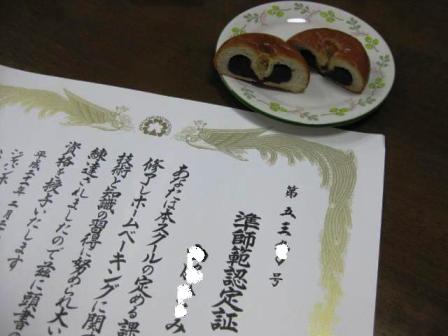 第五三 号
準師範認定証
み
あなたは本スクールの定める課
修了しホームベーキングに関
技術と知識の習得に努められ大い
練達されましたので茲に頭書
資格を授与いたします
平成二十一年二月
ジャパンホ